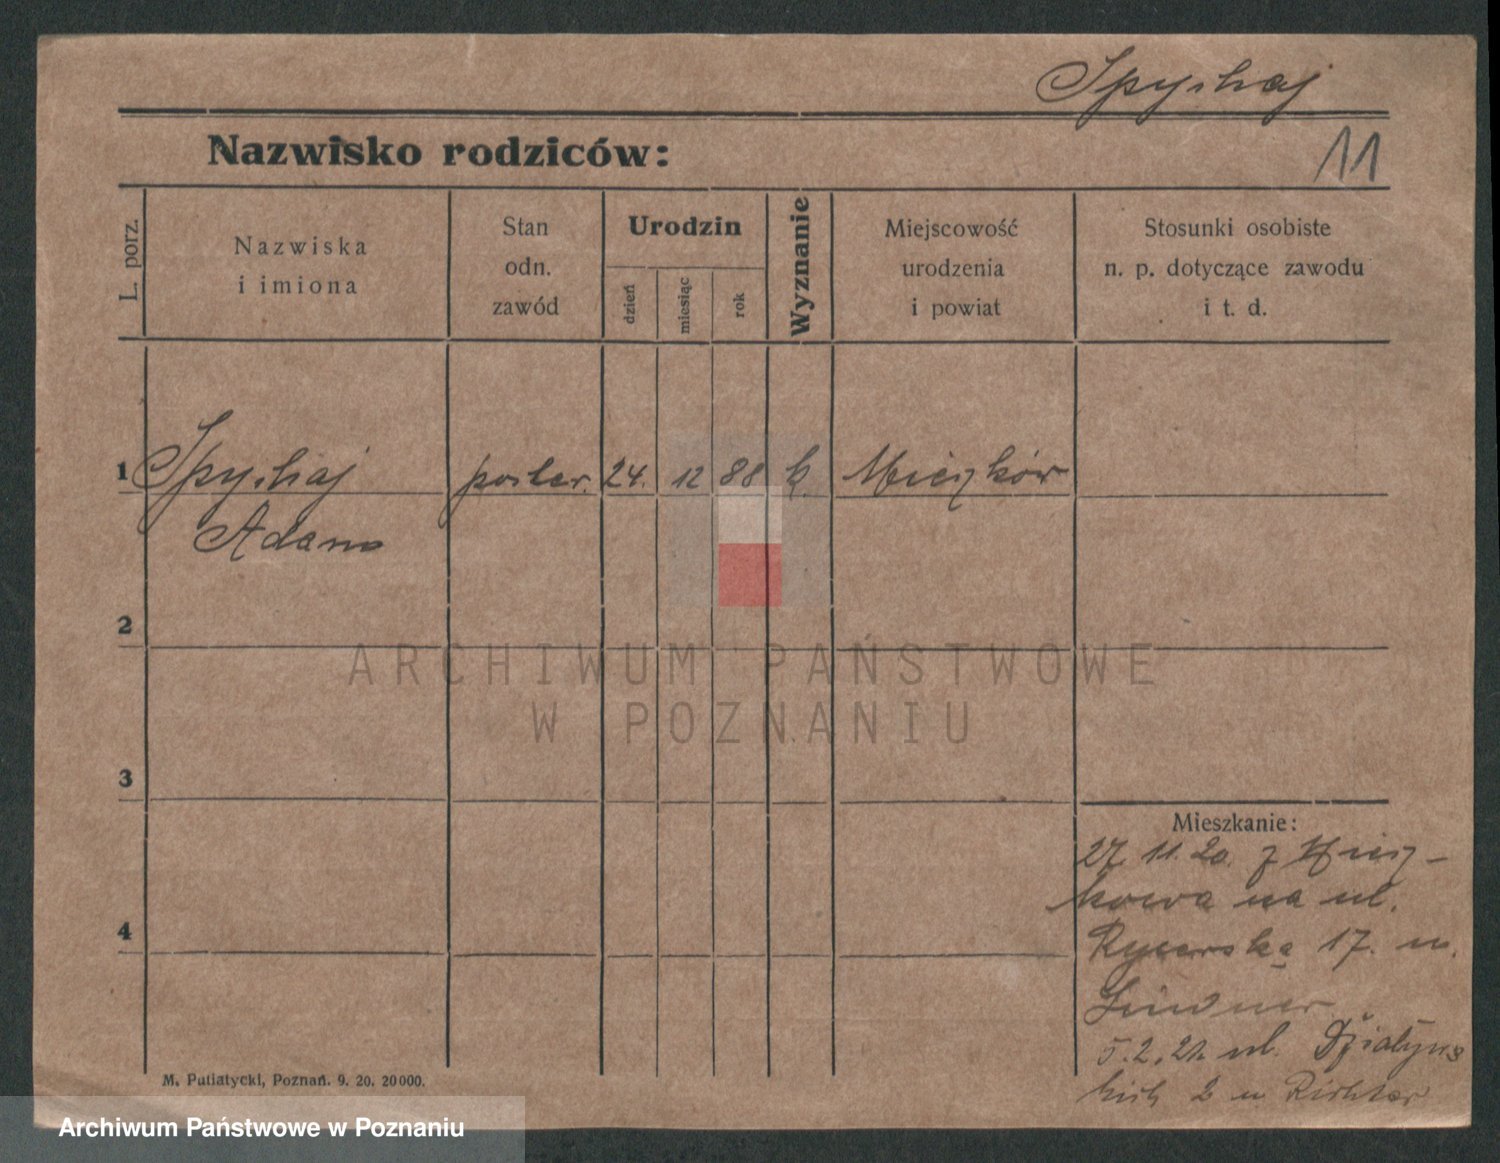 Spychaj
Nazwisko rodziców:
11
L. porz.
Nazwiska
i imiona
Stan
odn.
zawód
Urodzin
dzień
miesiąc
rok
Wyznanie
Miejscowość
urodzenia
i powiat
Stosunki osobiste
n. p. dotyczące zawodu
i t. d.
1 Spychaj poster. 24. 12 88 k. Mieszków
Adam
2
ARCHIWUM PAŃSTWOWE
W POZNANIU
3
Mieszkanie:
27. 11. 20. z Miesz-
kowa na ul.
4
Rycerską 17. u.
5. 2. 21. ul. Działyńs
kich 2 u Richter
M. Putiatycki, Poznań. 9. 20. 20000.
Archiwum Państwowe w Poznaniu